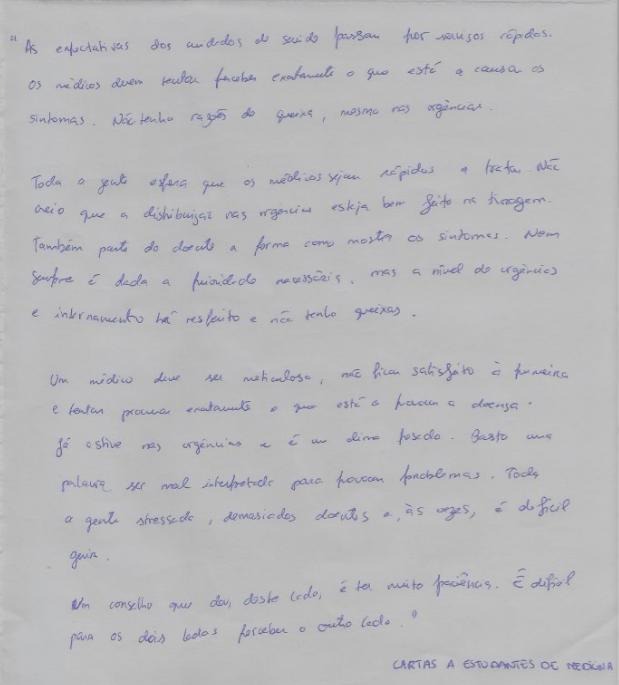 "As expectativas dos cuidados de saúde passam por serviços rápidos.
Os médicos devem tentar perceber exatamente o que está a causar os
sintomas. Não tenho razões de queixa, mesmo nas urgências.
Toda a gente espera que os médicos sejam rápidos a tratar. Não
creio que a distribuição nas urgências esteja bem feita na triagem.
Também parte do doente a forma como mostra os sintomas. Nem
sempre é dada a prioridade necessária, mas a nível de urgências
e internamento há respeito e não tenho queixas.
Um médico deve ser meticuloso, não ficar satisfeito à primeira
e tentar procurar exatamente o que está a provocar a doença.
Já estive nas urgências e é um clima pesado. Basta uma
palavra ser mal interpretada para provocar problemas. Toda
a gente stressada, demasiados doentes e, às vezes, é difícil
gerir.
Um conselho que dou, deste lado, é ter muita paciência. É difícil
para os dois lados perceber o outro lado."
CARTAS A ESTUDANTES DE MEDICINA